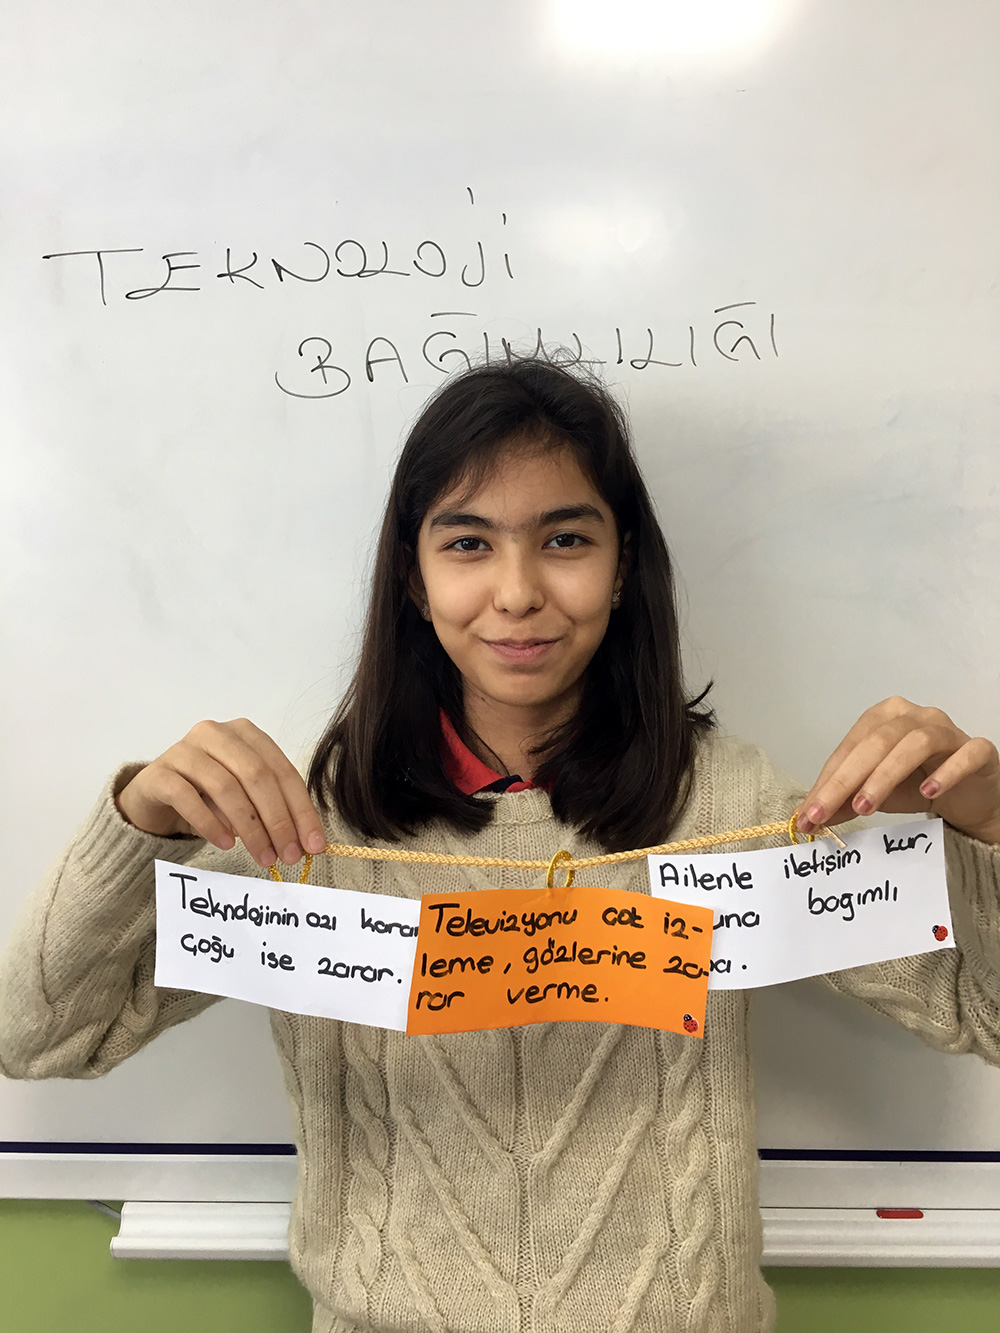 TEKNOLOJİ
BAĞIMLILIĞI
Teknolojinin azı karar
çoğu ise zarar.
Televizyonu çok iz-
leme, gözlerine za-
rar verme.
Ailenle iletişim kur,
bağımlı